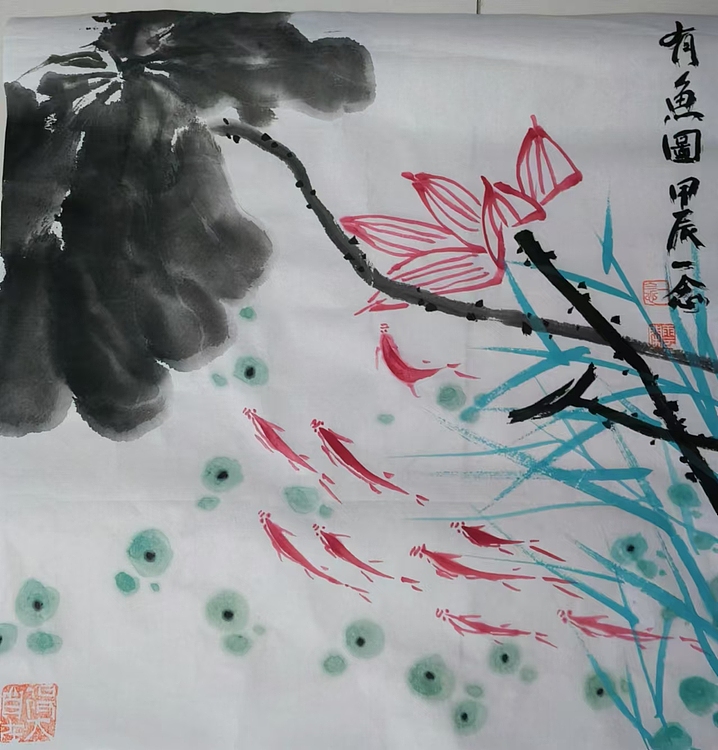 有魚圖 甲辰 一念